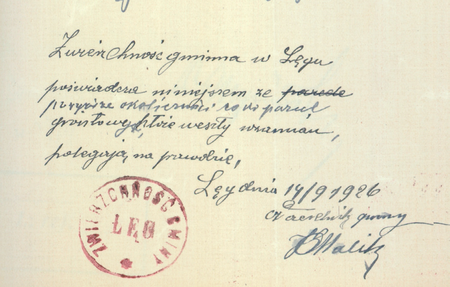 Zwierzchność gminna w Łęgu
poświadcza niniejszem że
powyższe okoliczności co do parcel
gruntowych które weszły w zamian,
polegają na prawdzie,
Łęg dnia 14/9 1926
Naczelnik gminy
ZWIERZCHNOŚĆ GMINY
ŁĘG